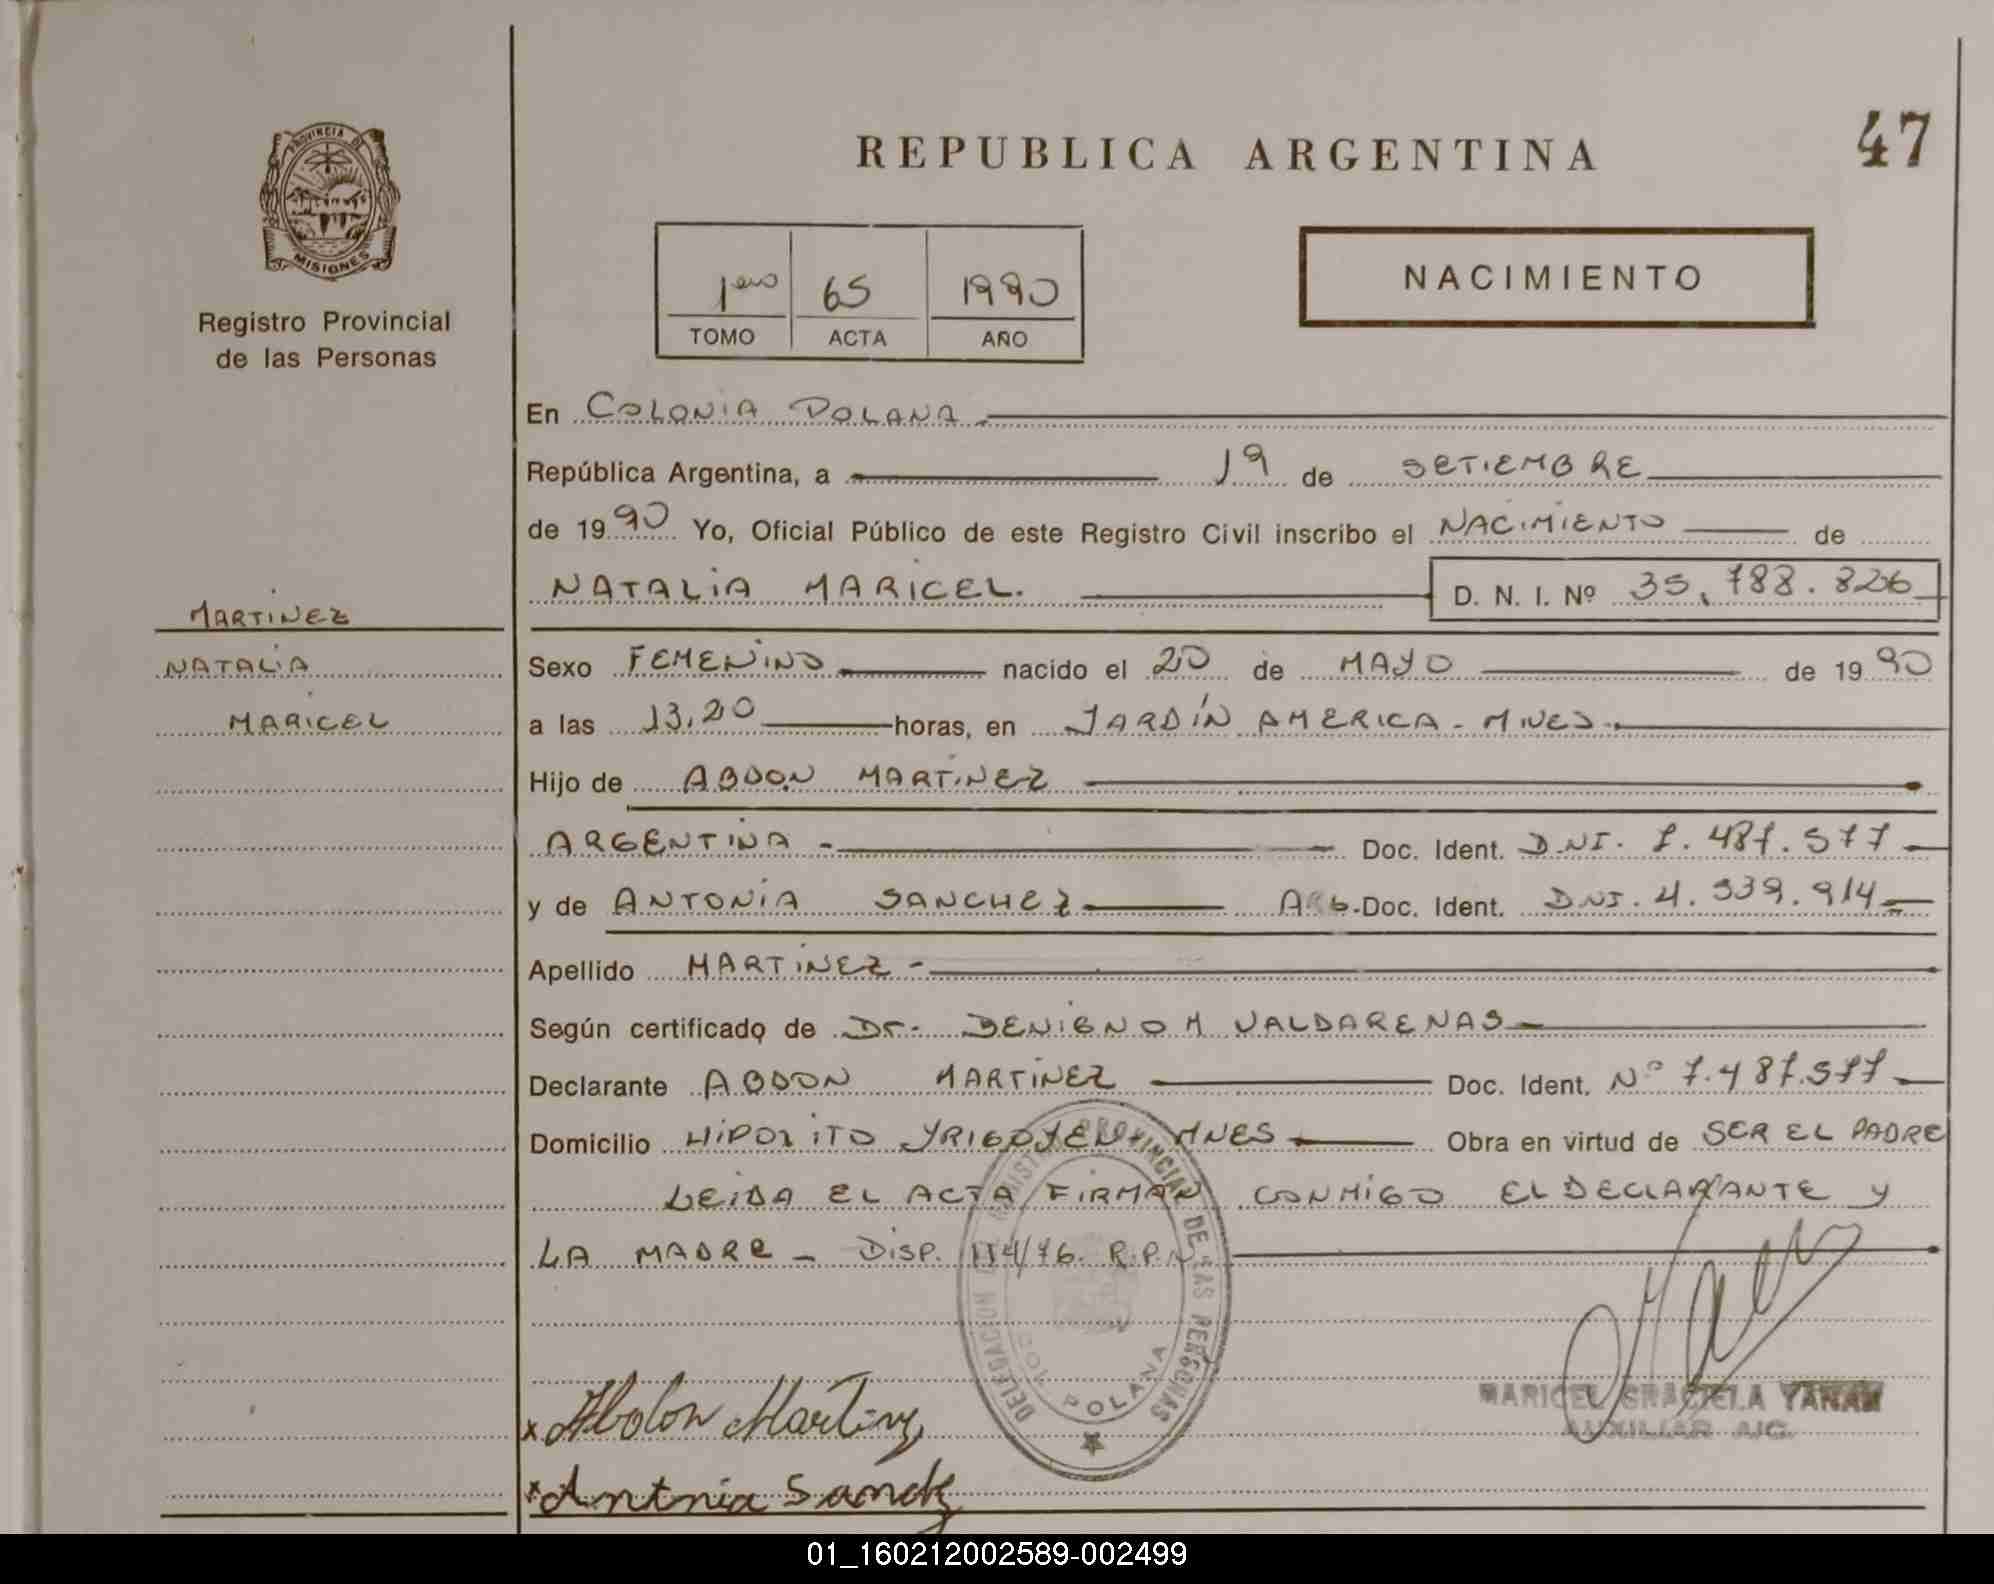 PROVINCIA DE
MISIONES
Registro Provincial
de las Personas
REPUBLICA ARGENTINA
47
1ero 65 1990
TOMO ACTA AÑO
NACIMIENTO
En COLONIA POLANA
República Argentina, a 19 de SETIEMBRE
de 1990 Yo, Oficial Público de este Registro Civil inscribo el NACIMIENTO de
NATALIA MARICEL. D. N. I. Nº 35.788.826
MARTINEZ
NATALIA
MARICEL
Sexo FEMENINO nacido el 20 de MAYO de 1990
a las 13,20 horas, en JARDÍN AMERICA - MNES.
Hijo de ABDON MARTINEZ
ARGENTINA - Doc. Ident. D.N.I. 7.487.577
y de ANTONIA SANCHEZ ARG. Doc. Ident. D.N.I. 4.539.914
Apellido MARTINEZ -
Según certificado de Dr. BENIGNO M VALDARENAS
Declarante ABDON MARTINEZ Doc. Ident. Nº 7.487.577
Domicilio HIPOLITO YRIGOYEN - MNES Obra en virtud de SER EL PADRE
LEIDA EL ACTA FIRMAN CONMIGO EL DECLARANTE Y
LA MADRE - DISP. 114/76. R.P.N
DELEGACION DEL REGISTRO PROVINCIAL DE LAS PERSONAS
COL. POLANA
MARICEL GRACIELA YANAM
AUXILIAR A/C.
x Abdon Martinez
x Antonia Sanchez
01_160212002589-002499